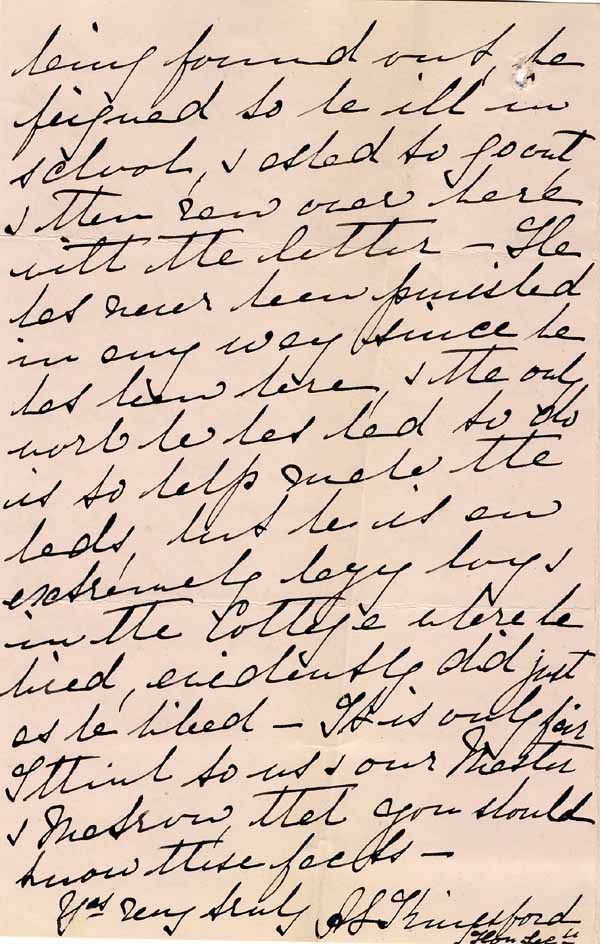 being found out, he
feigned to be ill in
school, & asked to go out
& then ran over here
with the letter – He
has never been punished
in any way since he
has been here, & the only
work he has had to do
is to help make the
beds, but he is an
extremely lazy boy &
in the Cottage where he
lived, evidently did just
as he liked – It is only fair
I think to us & our Master
& Matron, that you should
know these facts –
Yrs very truly A S Kingsford
Hon Secy